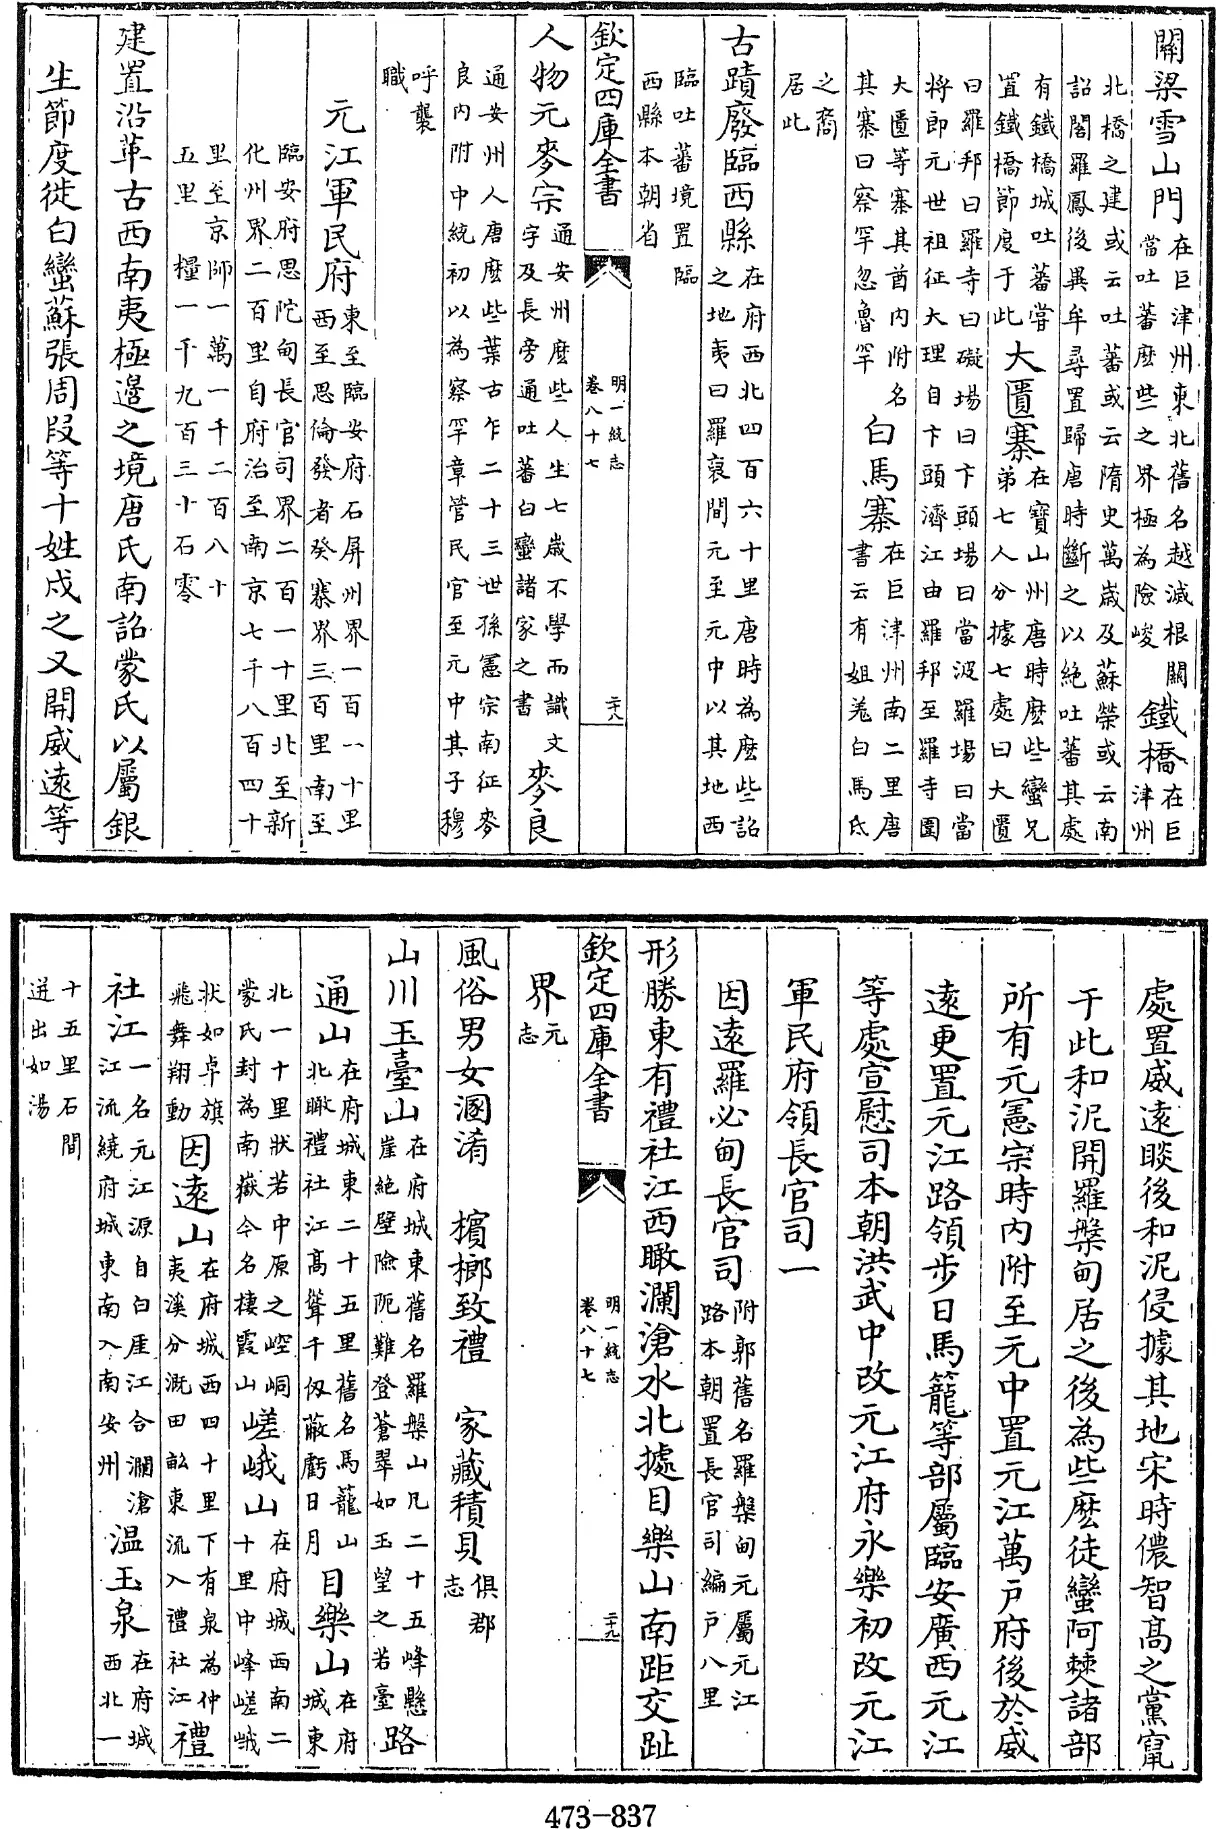 關梁雪山門在巨津州東北舊名越減根關當吐蕃麽些之界極為險峻鐵橋在巨津州
北橋之建或云吐蕃或云隋史萬歲及蘇榮或云南
詔閣羅鳳後異牟尋置歸唐時斷之以絶吐蕃其處
有鐵橋城吐蕃嘗置鐵橋節度于此大匱寨在寶山州唐時麽些蠻兄弟七人分據七處曰大匱
曰羅邦曰羅寺曰礙場曰卞頭場曰當波羅場曰當
將郎元世祖征大理自卞頭濟江由羅邦至羅寺圍
大匱等寨其酋内附名其寨曰察罕忽魯罕白馬寨在巨津州南二里唐書云有姐羌白馬氐
之裔
居此
古蹟廢臨西縣在府西北四百六十里唐時為麽些詔之地夷曰羅裒間元至元中以其地西
臨吐蕃境置臨
西縣本朝省
欽定四庫全書 明一統志 卷八十七 二十八
人物元麥宗通安州麽些人生七歲不學而識文字及長旁通吐蕃白蠻諸家之書麥良
通安州人唐麽些葉古乍二十三世孫憲宗南征麥
良内附中統初以為察罕章管民官至元中其子穆
呼襲
職
元江軍民府東至臨安府石屏州界一百一十里西至思倫發者癸寨界三百里南至
臨安府思陀甸長官司界二百一十里北至新
化州界二百里自府治至南京七千八百四十
里至京師一萬一千二百八十
五里 糧一千九百三十石零
建置沿革古西南夷極邊之境唐氏南詔蒙氏以屬銀
生節度徙白蠻蘇張周段等十姓戍之又開威遠等
處置威遠睒後和泥侵據其地宋時儂智高之黨竄
于此和泥開羅槃甸居之後為些麽徒蠻阿僰諸部
所有元憲宗時内附至元中置元江萬戶府後於威
遠更置元江路領步日馬籠等部屬臨安廣西元江
等處宣慰司本朝洪武中改元江府永樂初改元江
軍民府領長官司一
因遠羅必甸長官司附郭舊名羅槃甸元屬元江路本朝置長官司編戶八里
形勝東有禮社江西瞰瀾滄水北據目樂山南距交趾
欽定四庫全書 明一統志 卷八十七 二十九
界元志
風俗男女溷淆 檳榔致禮 家藏積貝俱郡志
山川玉臺山在府城東舊名羅槃山凡二十五峰懸崖絶壁險阨難登蒼翠如玉望之若臺路
通山在府城東二十五里舊名馬籠山北瞰禮社江高聳千仭蔽虧日月目樂山在府城東
北一十里狀若中原之崆峒蒙氏封為南嶽今名棲霞山嵯峨山在府城西南二十里中峰嵯峨
狀如卓旗飛舞翔動因遠山在府城西四十里下有泉為仲夷溪分溉田畝東流入禮社江禮
社江一名元江源自白厓江合瀾滄江流繞府城東南入南安州溫玉泉在府城西北一
十五里石間
迸出如湯
473-837